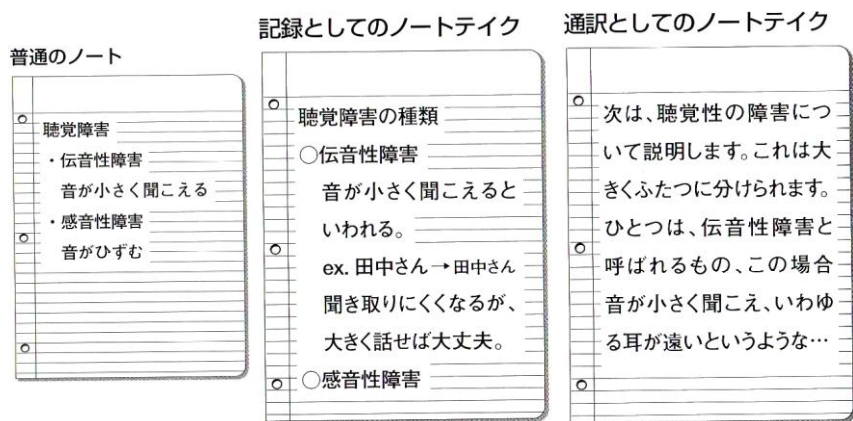 普通のノート
聴覚障害
・伝音性障害
音が小さく聞こえる
・感音性障害
音がひずむ
記録としてのノートテイク
聴覚障害の種類
○伝音性障害
音が小さく聞こえると
いわれる。
ex. 田中さん→田中さん
聞き取りにくくなるが、
大きく話せば大丈夫。
○感音性障害
通訳としてのノートテイク
次は、聴覚性の障害につ
いて説明します。これは大
きくふたつに分けられます。
ひとつは、伝音性障害と
呼ばれるもの、この場合
音が小さく聞こえ、いわゆ
る耳が遠いというような…